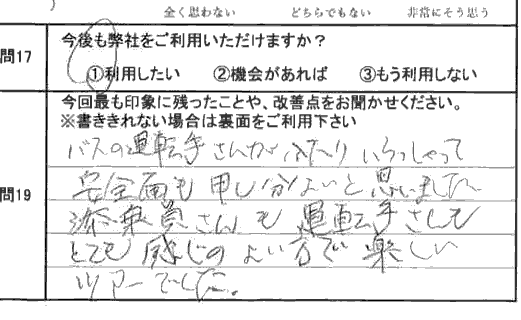 全く思わない　どちらでもない　非常にそう思う
問17
今後も弊社をご利用いただけますか？
①利用したい　②機会があれば　③もう利用しない
問19
今回最も印象に残ったことや、改善点をお聞かせください。
※書ききれない場合は裏面をご利用下さい
バスの運転手さんがふたりいらっしゃって
安全面も申し分ないと思いました
添乗員さんも運転手さんも
とても感じのよい方で楽しい
ツアーでした。